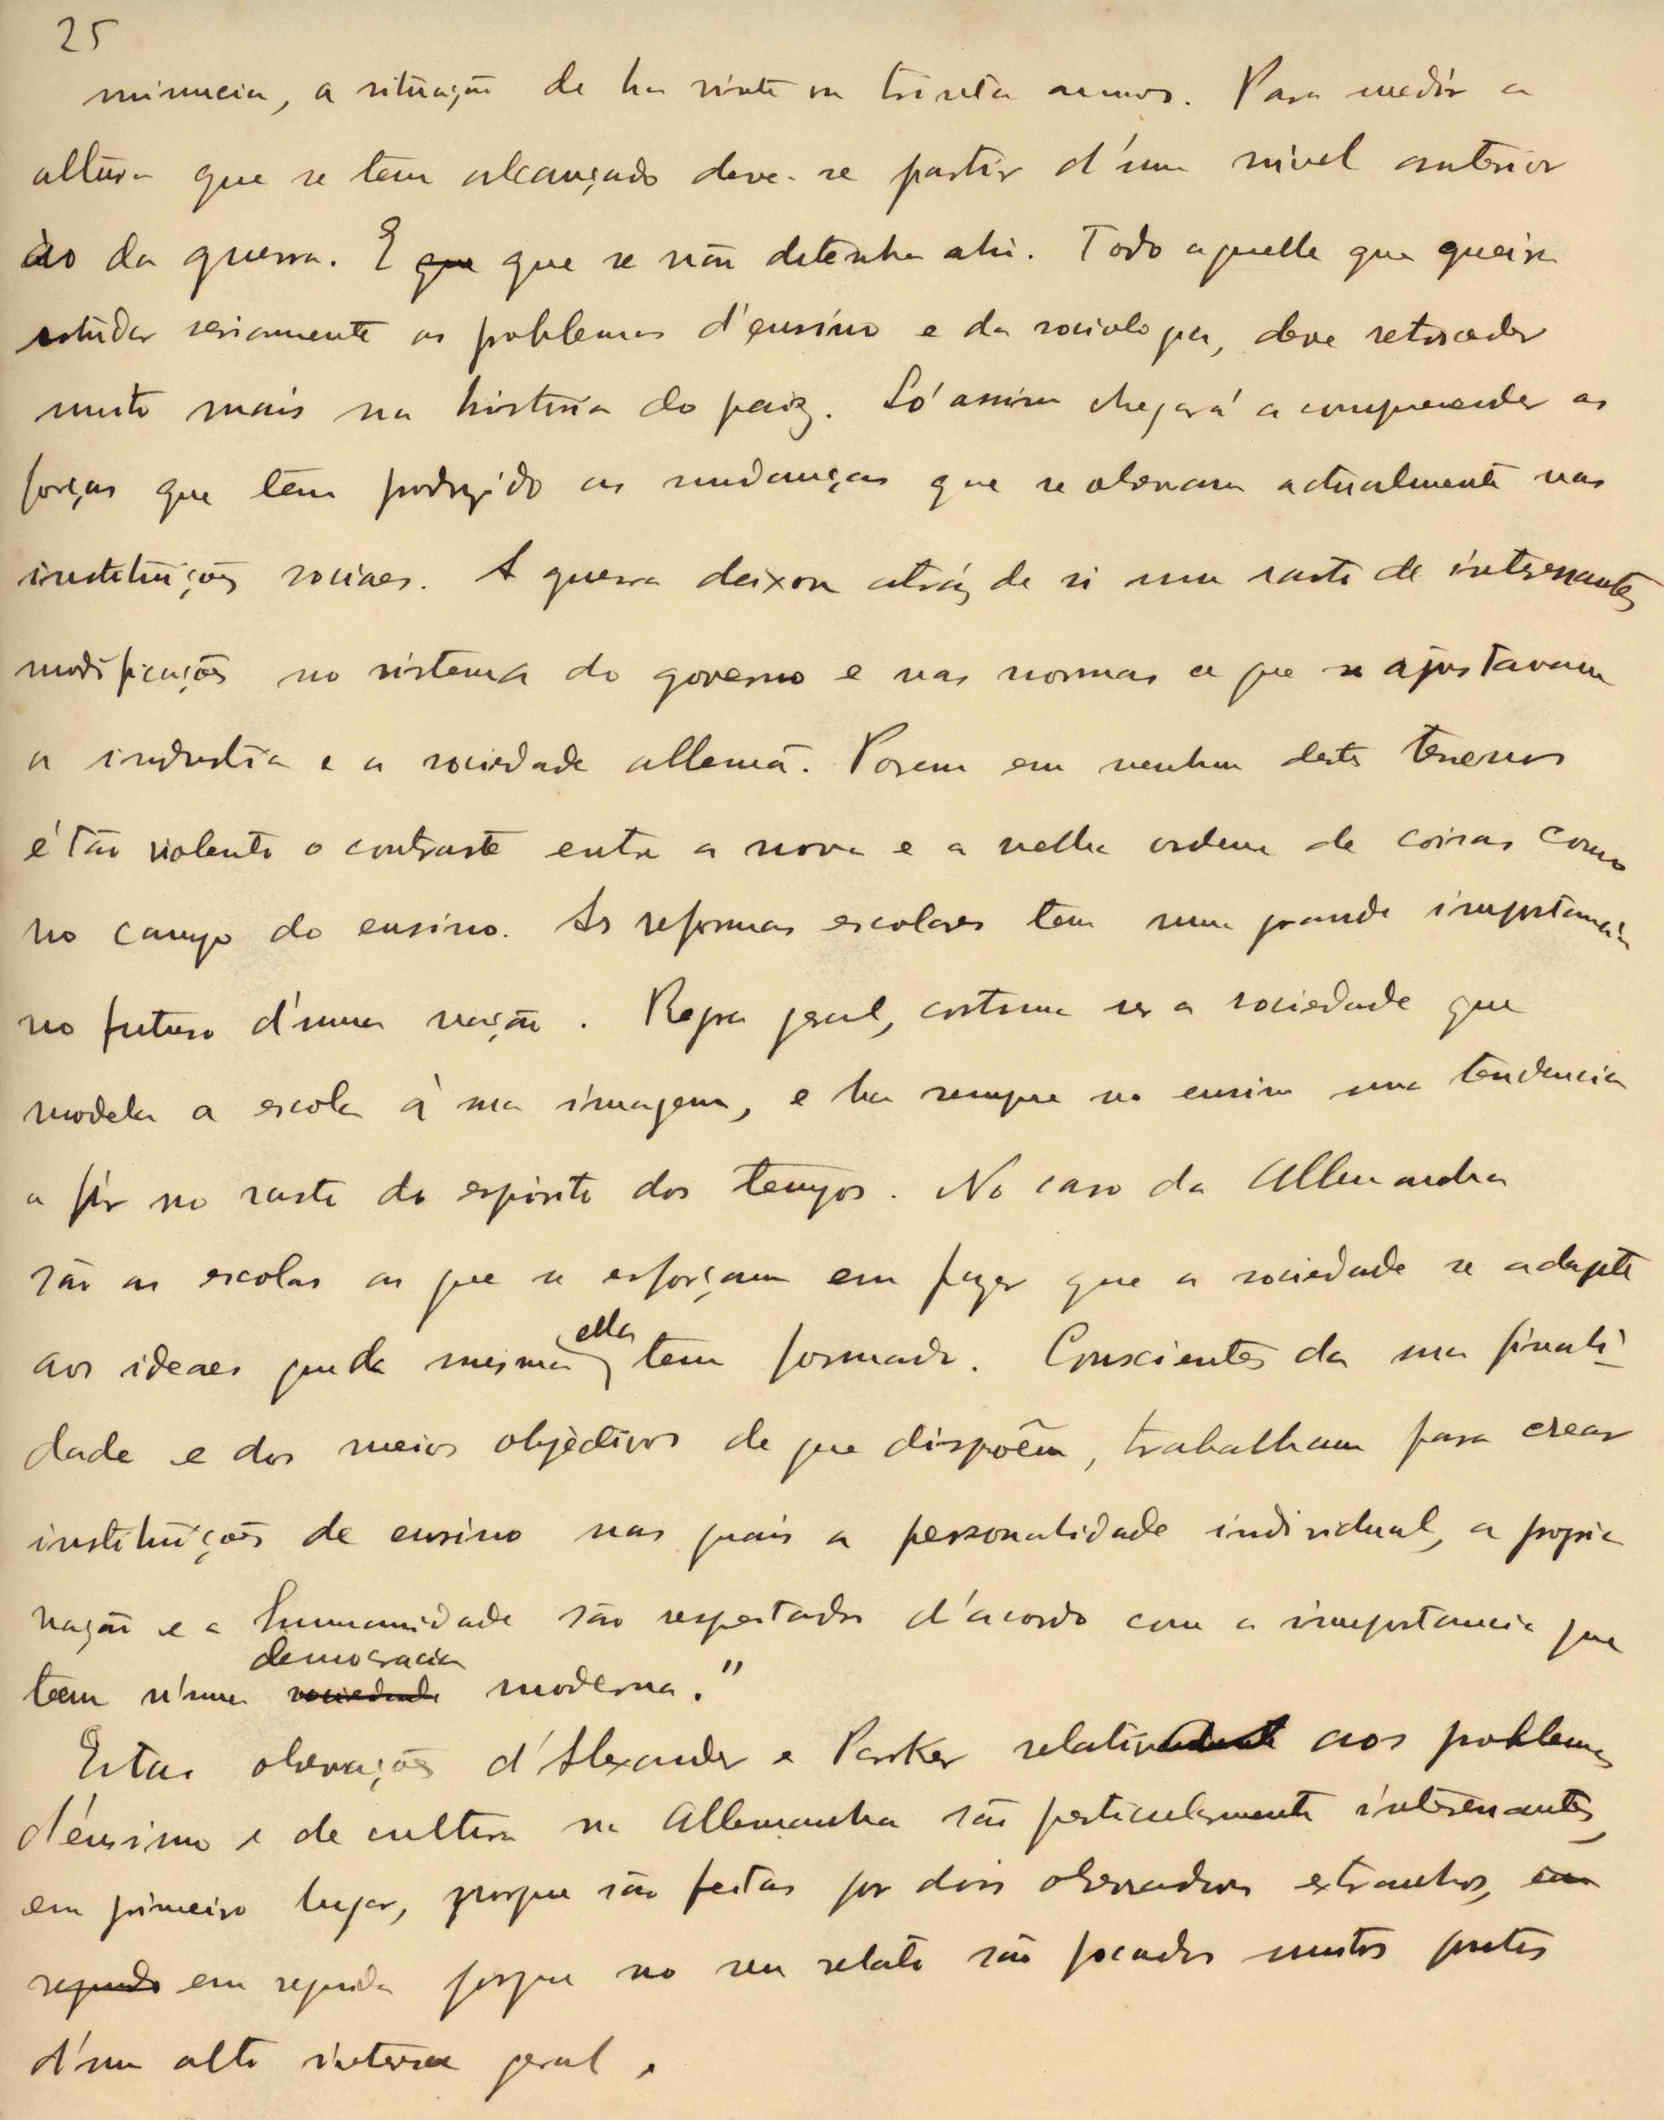 25
minucia, a situação de ha vinte ou trinta annos. Para medir a
altura que se tem alcançado deve-se partir d'um nivel anterior
ao da guerra. E que que se não detenha ahi. Todo aquelle que queira
estudar seriamente os problemas d'ensino e da sociologia, deve retroceder
muito mais na historia do paiz. Só assim chegará a comprehender as
forças que têm produzido as mudanças que se observam actualmente nas
instituições sociaes. A guerra deixou atráz de si um rasto de interessantes
modificações no sistema do governo e nas normas a que se ajustavam
a industria e a sociedade allemã. Porem em nenhum destes terrenos
é tão violento o contraste entre a nova e a velha ordem de coisas como
no campo do ensino. As reformas escolares tem uma grande importancia
no futuro d'uma nação. Regra geral, costuma ser a sociedade que
modela a escola á sua imagem, e ha sempre no ensino uma tendencia
a ir no rasto do espirito dos tempos. No caso da Allemanha
são as escolas as que se esforçam em fazer que a sociedade se adapte
aos ideaes que mesma ella tem formado. Conscientes da sua finali-
dade e dos meios objectivos de que dispõem, trabalham para crear
instituições de ensino nas quais a personalidade individual, a propria
nação e a humanidade são respeitadas d'acordo com a importancia que
democracia
teem n'uma sociedade moderna."
Estas observações d'Alexander e Parker relativas aos problemas
d'ensino e de cultura na Allemanha são particularmente interessantes,
em primeiro lugar, porque são feitas por dois observadores extranhos, em
segundo em seguida porque no seu relato são focados muitos pontos
d'um alto interesse geral.